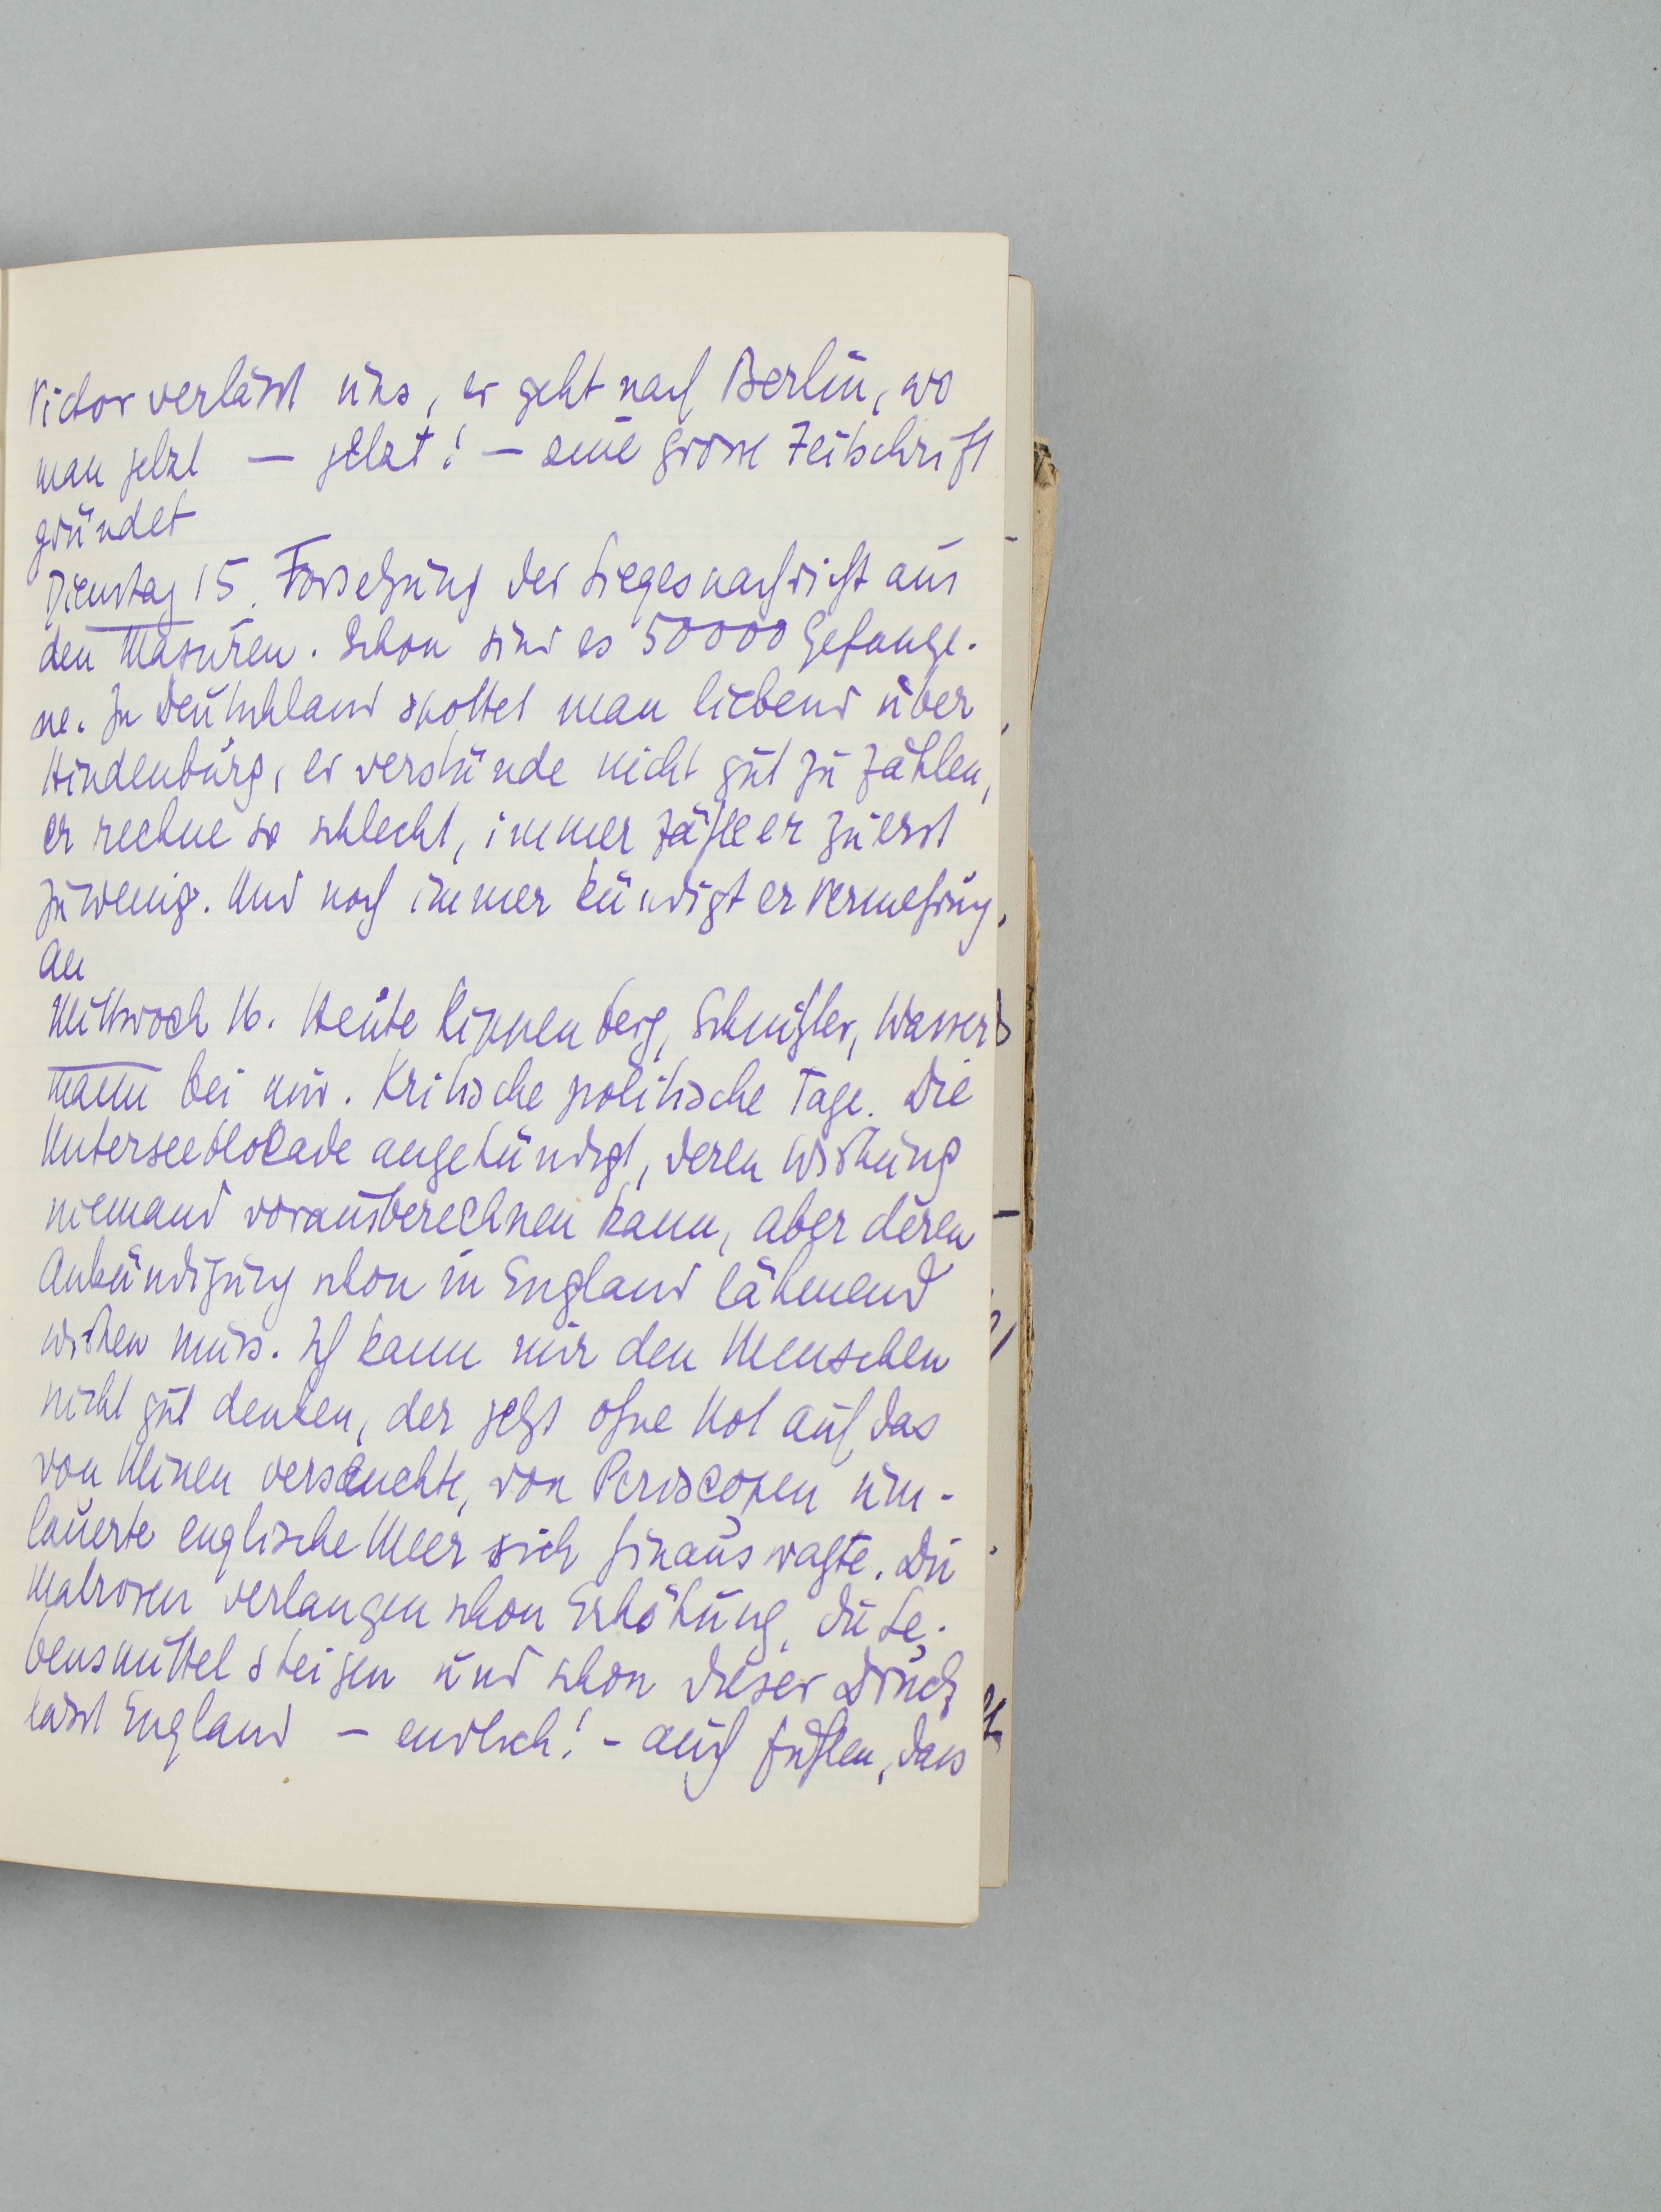 Victor verlässt uns, er geht nach Berlin, wo
man jetzt — jetzt! — eine grosse Zeitschrift
gründet
Dienstag 15. Forsetzung der Siegesnachricht aus
den Masuren. Schon sind es 50000 Gefange-
ne. In Deutschland spottet man liebend über
Hindenburg, er verstünde nicht gut zu zählen,
er rechne so schlecht, immer zähle er zuerst
zuwenig. Und noch immer kündigt er Vermehrung
an
Mittwoch 16. Heute Kippenberg, Schnitzler, Wasser
mann bei mir. Kritische politische Tage. Die
Unterseeblokade angekündigt, deren Wirkung
niemand vorausberechnen kann, aber deren
Ankündigung schon in England lähmend
wirken muss. Ich kann mir den Menschen
nicht gut denken, der jetzt ohne Not auf das
von Minen verseuchte, von Periscopen um-
lauerte englische Meer sich hinauswagte. Die
Matrosen verlangen schon Erhöhung, die Le-
bensmittel steigen und schon dieser Druck
lässt England — endlich! - auch fühlen, dass